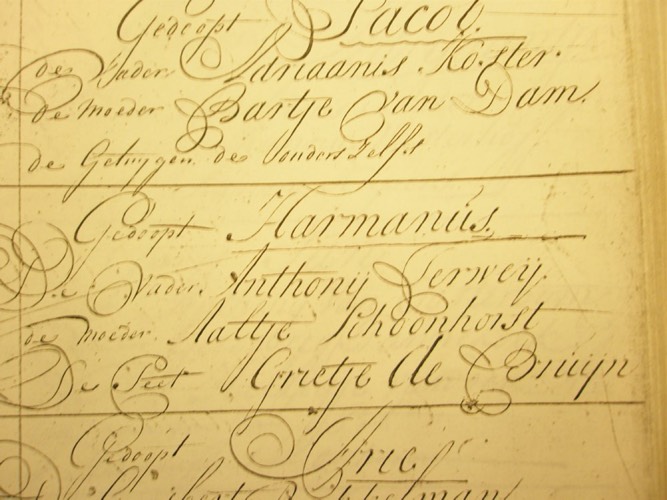 Gedoopt Jacob.
de Vader Adriaanis Koster.
de moeder Bartje van Dam.
de Getuygen de ouders Zelfs
Gedoopt Harmanus.
De Vader. Anthonij Terweij.
de moeder Aaltje Schoonhorst
De Peet Grietje de Bruijn
Gedoopt